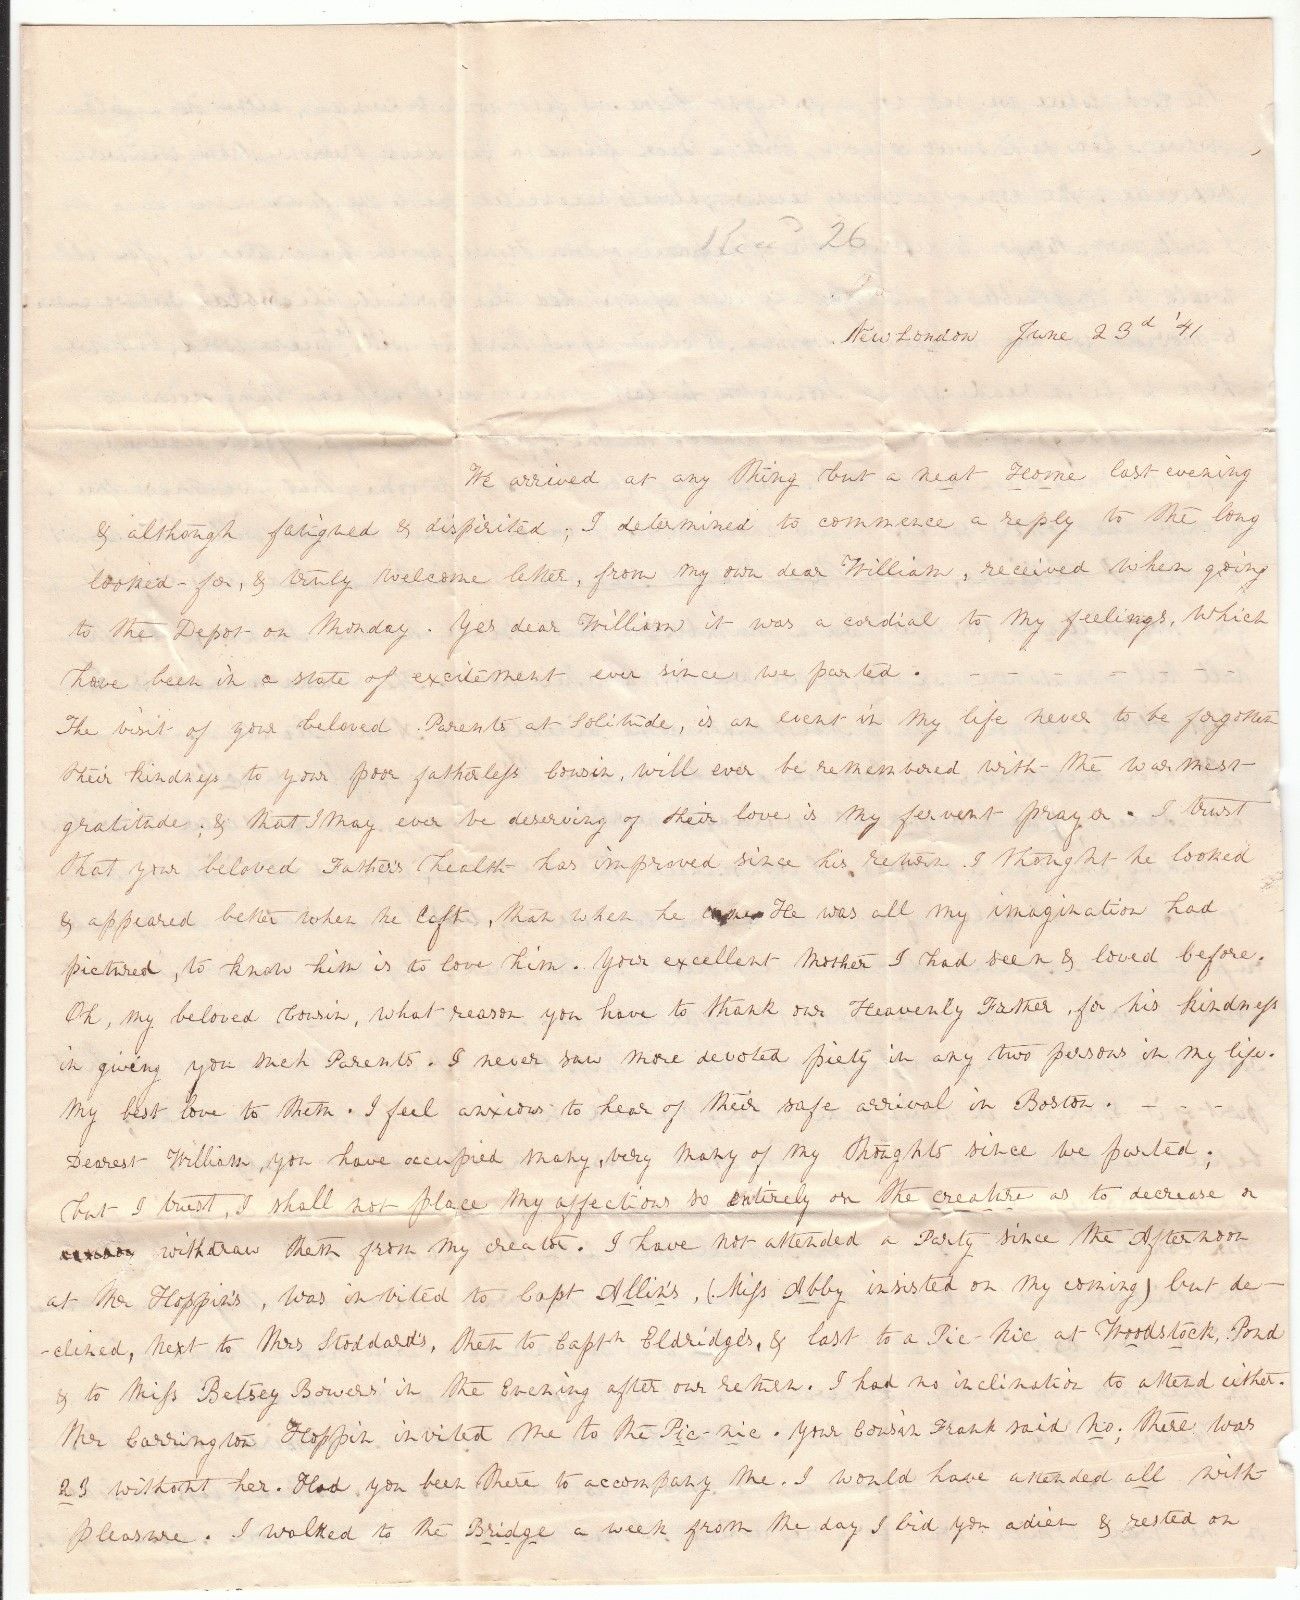 Rec'd 26
New London June 23d '41
We arrived at any thing but a neat Home last evening
& although fatigued & dispirited; I determined to commence a reply to the long
looked-for, & truly welcome letter, from my own dear William, received when going
to the Depot on Monday. Yes dear William it was a cordial to my feelings, which
have been in a state of excitement ever since we parted. - - - - - -
The visit of your beloved Parents at Solitude, is an event in my life never to be forgotten
their kindness to your poor fatherless Cousin, will ever be remembered with the warmest
gratitude; & that I may ever be deserving of their love is my fervent prayer. I trust
that your beloved Father's health has improved since his return. I thought he looked
& appeared better when he left, than when he came. He was all my imagination had
pictured, to know him is to love him. Your excellent Mother I had seen & loved before.
Oh, my beloved Cousin, what reason you have to thank our Heavenly Father, for his kindness
in giving you such Parents. I never saw more devoted piety in any two persons in my life.
My best love to them. I feel anxious to hear of their safe arrival in Boston. - - -
Dearest William, you have occupied many, very many of my thoughts since we parted;
but I trust, I shall not place my affections so entirely on the creature as to decrease or
withdraw them from my creator. I have not attended a Party since the Afternoon
at Mr Hoppin's, was invited to Capt Allin's, (Miss Abby insisted on my coming) but de-
-clined, next to Mrs Stoddard's, then to Captn Eldridge's, & last to a Pic-Nic at Woodstock, Pond
& to Miss Betsey Bowers' in the Evening after our return. I had no inclination to attend either.
Mr Carrington Hoppin invited me to the Pic-nic. Your Cousin Frank said No; there was
23 without her. Had you been there to accompany me. I would have attended all with
pleasure. I walked to the Bridge a week from the day I bid you adieu & rested on